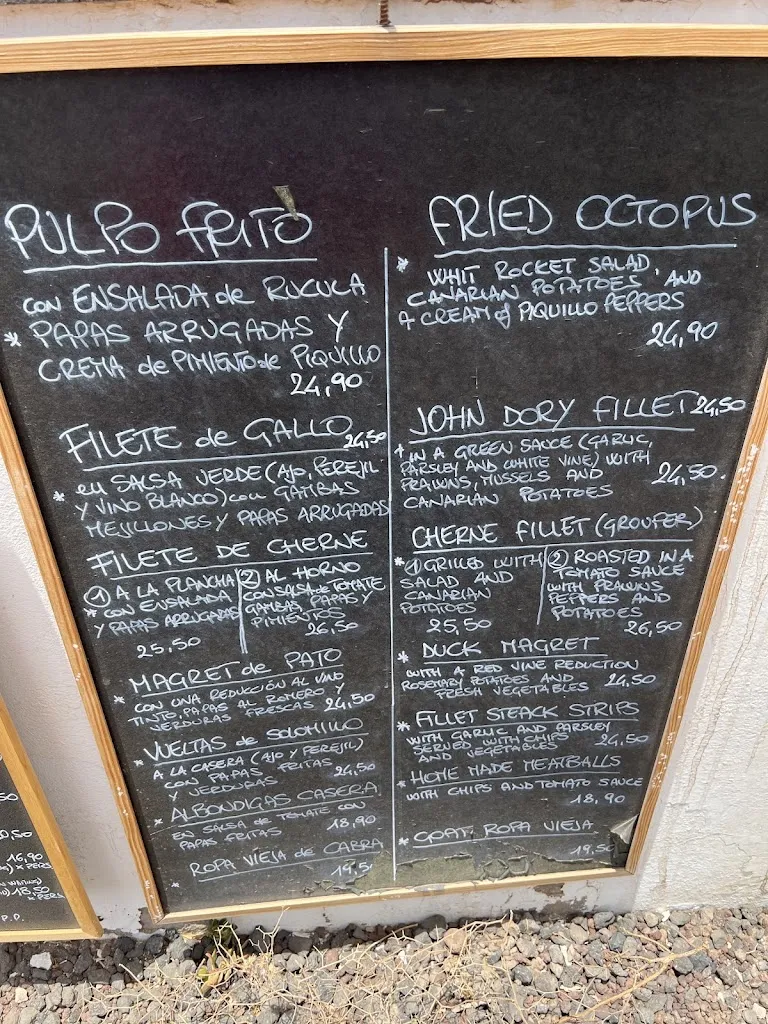 PULPO FRITO
CON ENSALADA de RUCULA
* PAPAS ARRUGADAS Y
CREMA de PIMIENTO de PIQUILLO
24,90
FILETE de GALLO 24,50
* EN SALSA VERDE (AJO, PEREJIL
Y VINO BLANCO) CON GAMBAS
MEJILLONES Y PAPAS ARRUGADAS
FILETE DE CHERNE
① A LA PLANCHA
* CON ENSALADA
Y PAPAS ARRUGADAS
25,50
② AL HORNO
CON SALSA de TOMATE
GAMBAS, PAPAS Y
PIMIENTOS
26,50
MAGRET de PATO
* CON UNA REDUCCIÓN AL VINO
TINTO, PAPAS AL ROMERO Y
VERDURAS FRESCAS 24,50
VUELTAS de SOLOMILLO
* A LA CASERA (AJO Y PEREJIL)
CON PAPAS FRITAS
Y VERDURAS 24,50
ALBONDIGAS CASERA
* EN SALSA de TOMATE CON
PAPAS FRITAS 18,90
ROPA VIEJA de CABRA
* 19,5
FRIED OCTOPUS
* WHIT ROCKET SALAD,
CANARIAN POTATOES AND
A CREAM of PIQUILLO PEPPERS
24,90
JOHN DORY FILLET 24,50
* IN A GREEN SAUCE (GARLIC,
PARSLEY AND WHITE VINE) WITH
PRAWNS, MUSSELS AND 24,50.
CANARIAN POTATOES
CHERNE FILLET (GROUFER)
* ① GRILLED WITH
SALAD AND
CANARIAN
POTATOES
25,50
② ROASTED IN A
TOMATO SAUCE
WITH PRAWNS
PEPPERS AND
POTATOES
26,50
* DUCK MAGRET
WITH A RED VINE REDUCTION
ROSEMARY POTATOES AND
FRESH VEGETABLES 24,50
* FILLET STEACK STRIPS
WITH GARLIC AND PARSLEY
SERVED WITH CHIPS
AND VEGETABLES 24,50
* HOME MADE MEATBALLS
WITH CHIPS AND TOMATO SAUCE
18,90
* GOAT ROPA VIEJA
19,50
50
0,50
16,90
) x PERS
18,50
x PERS
P.P.